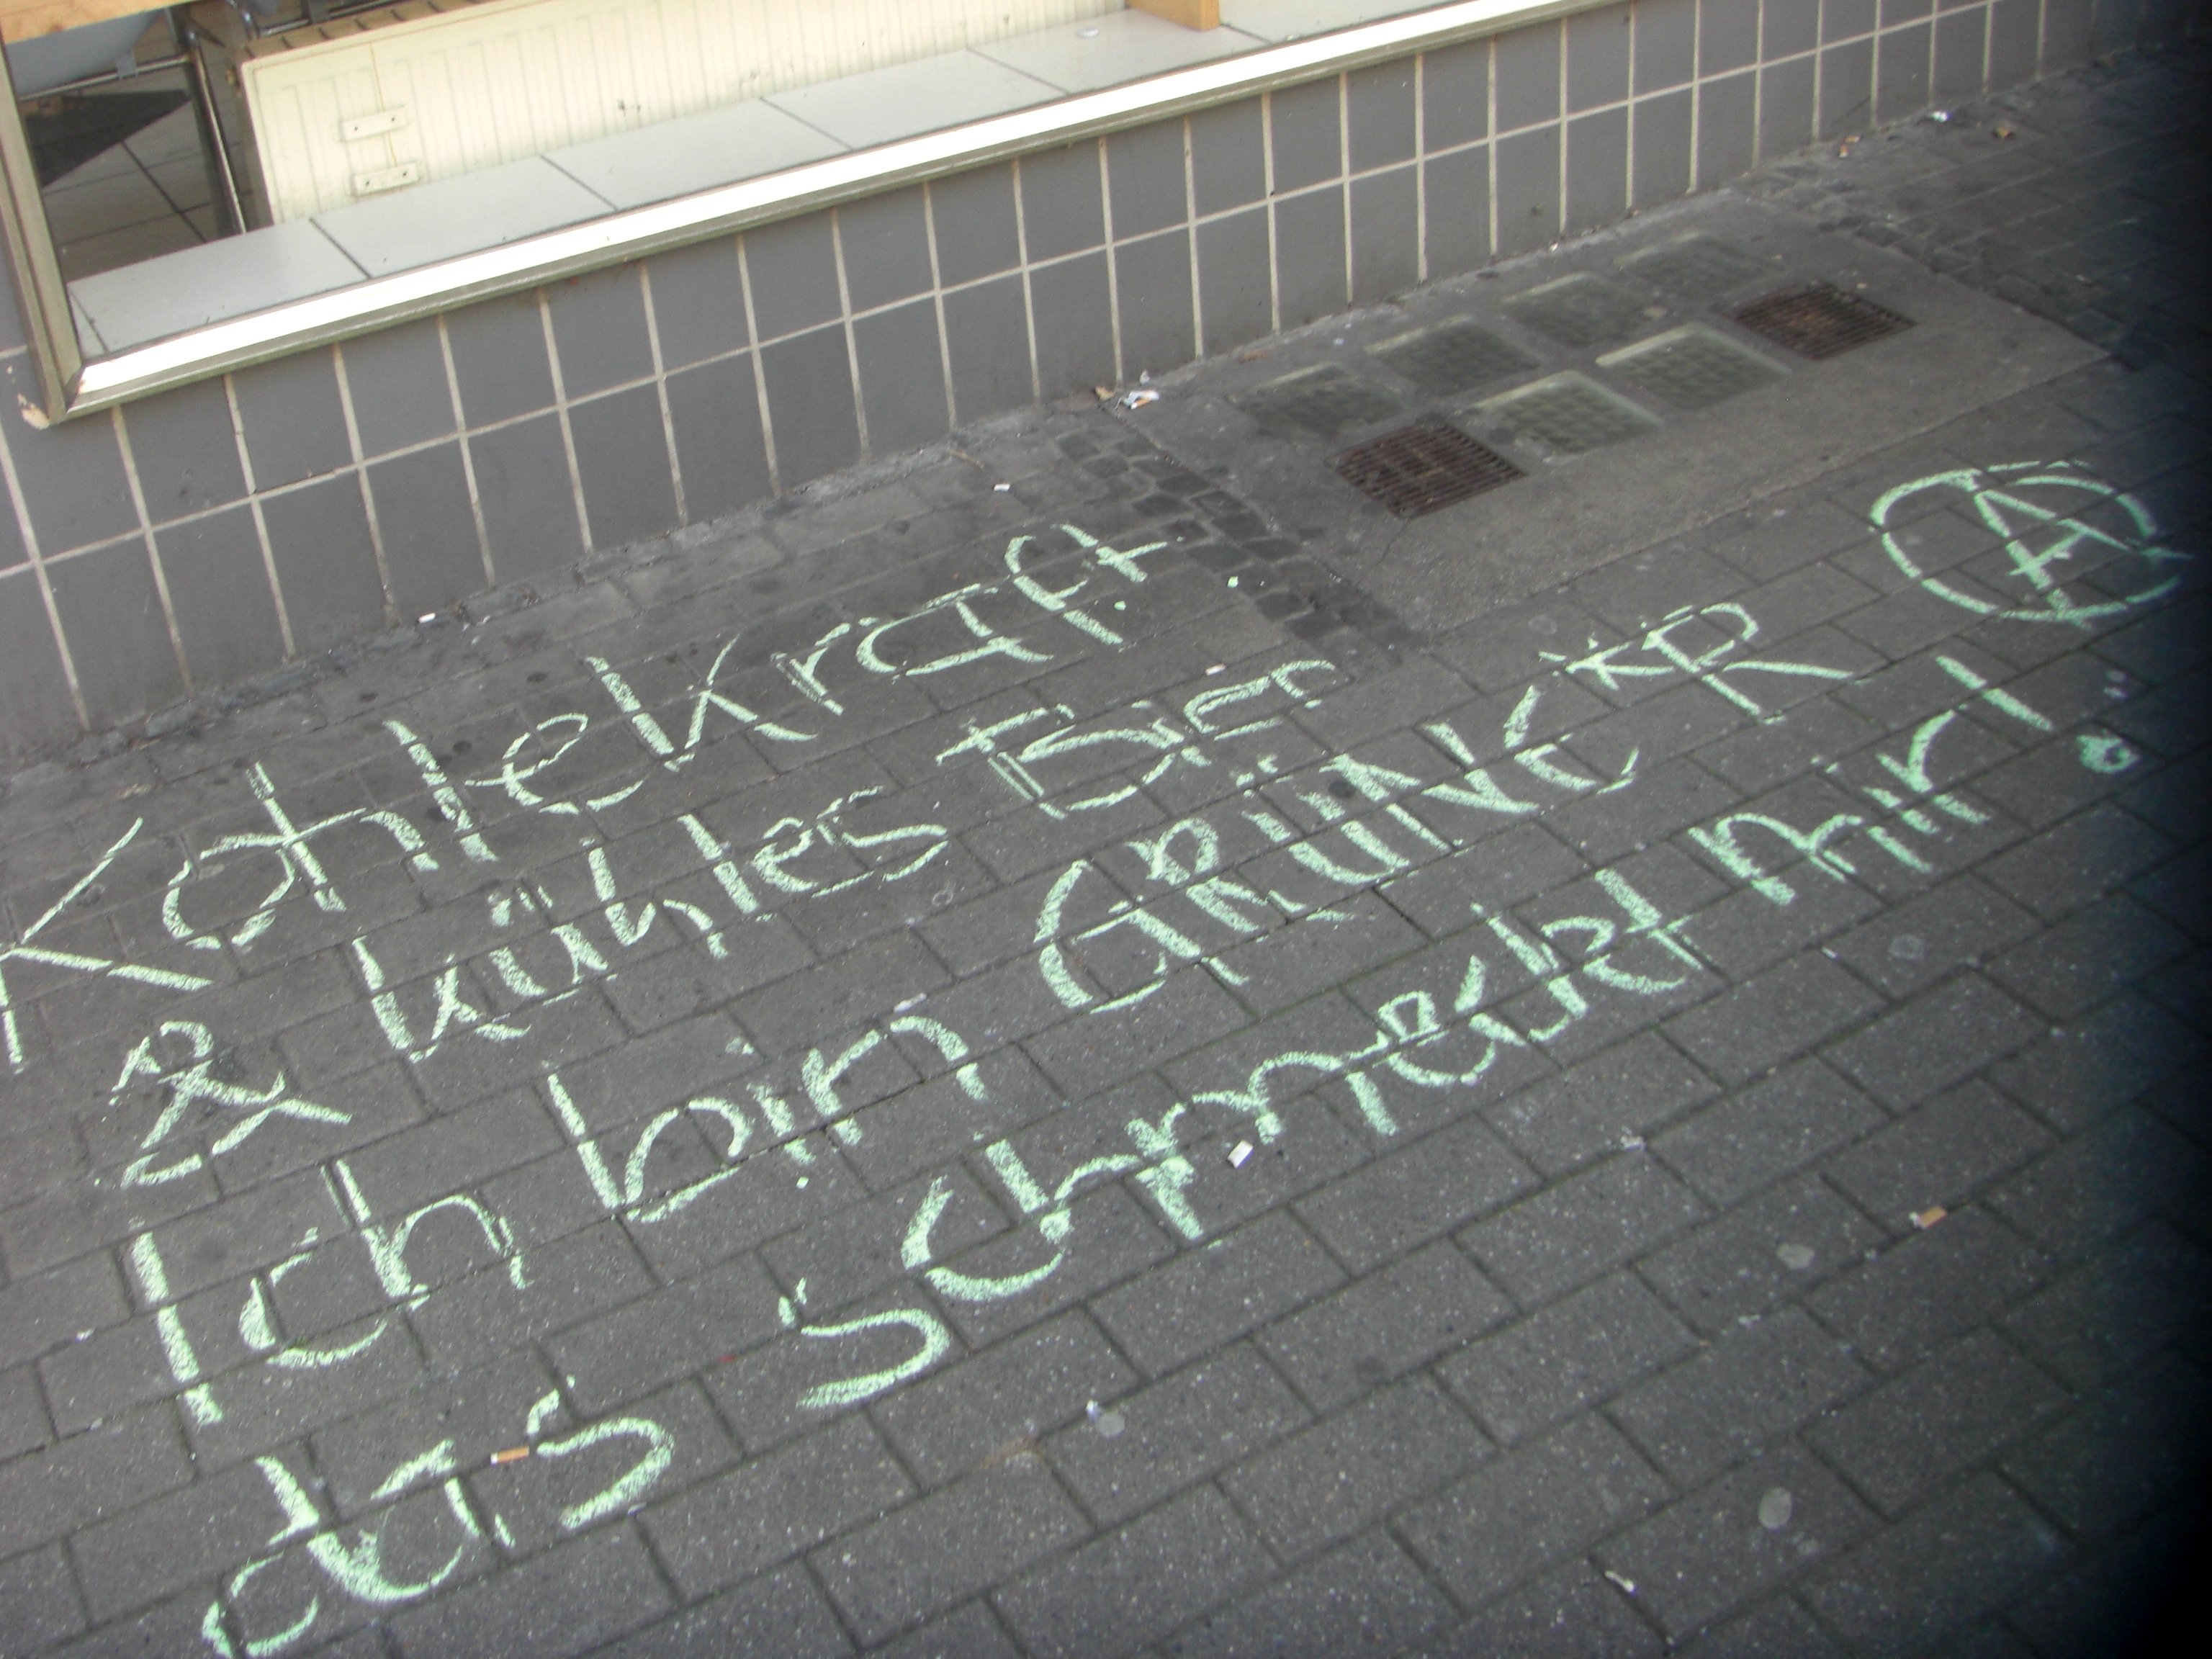 Kohlekraft
& kühles Bier
Ich bin GRÜNER Ⓐ
das schmeckt mir!